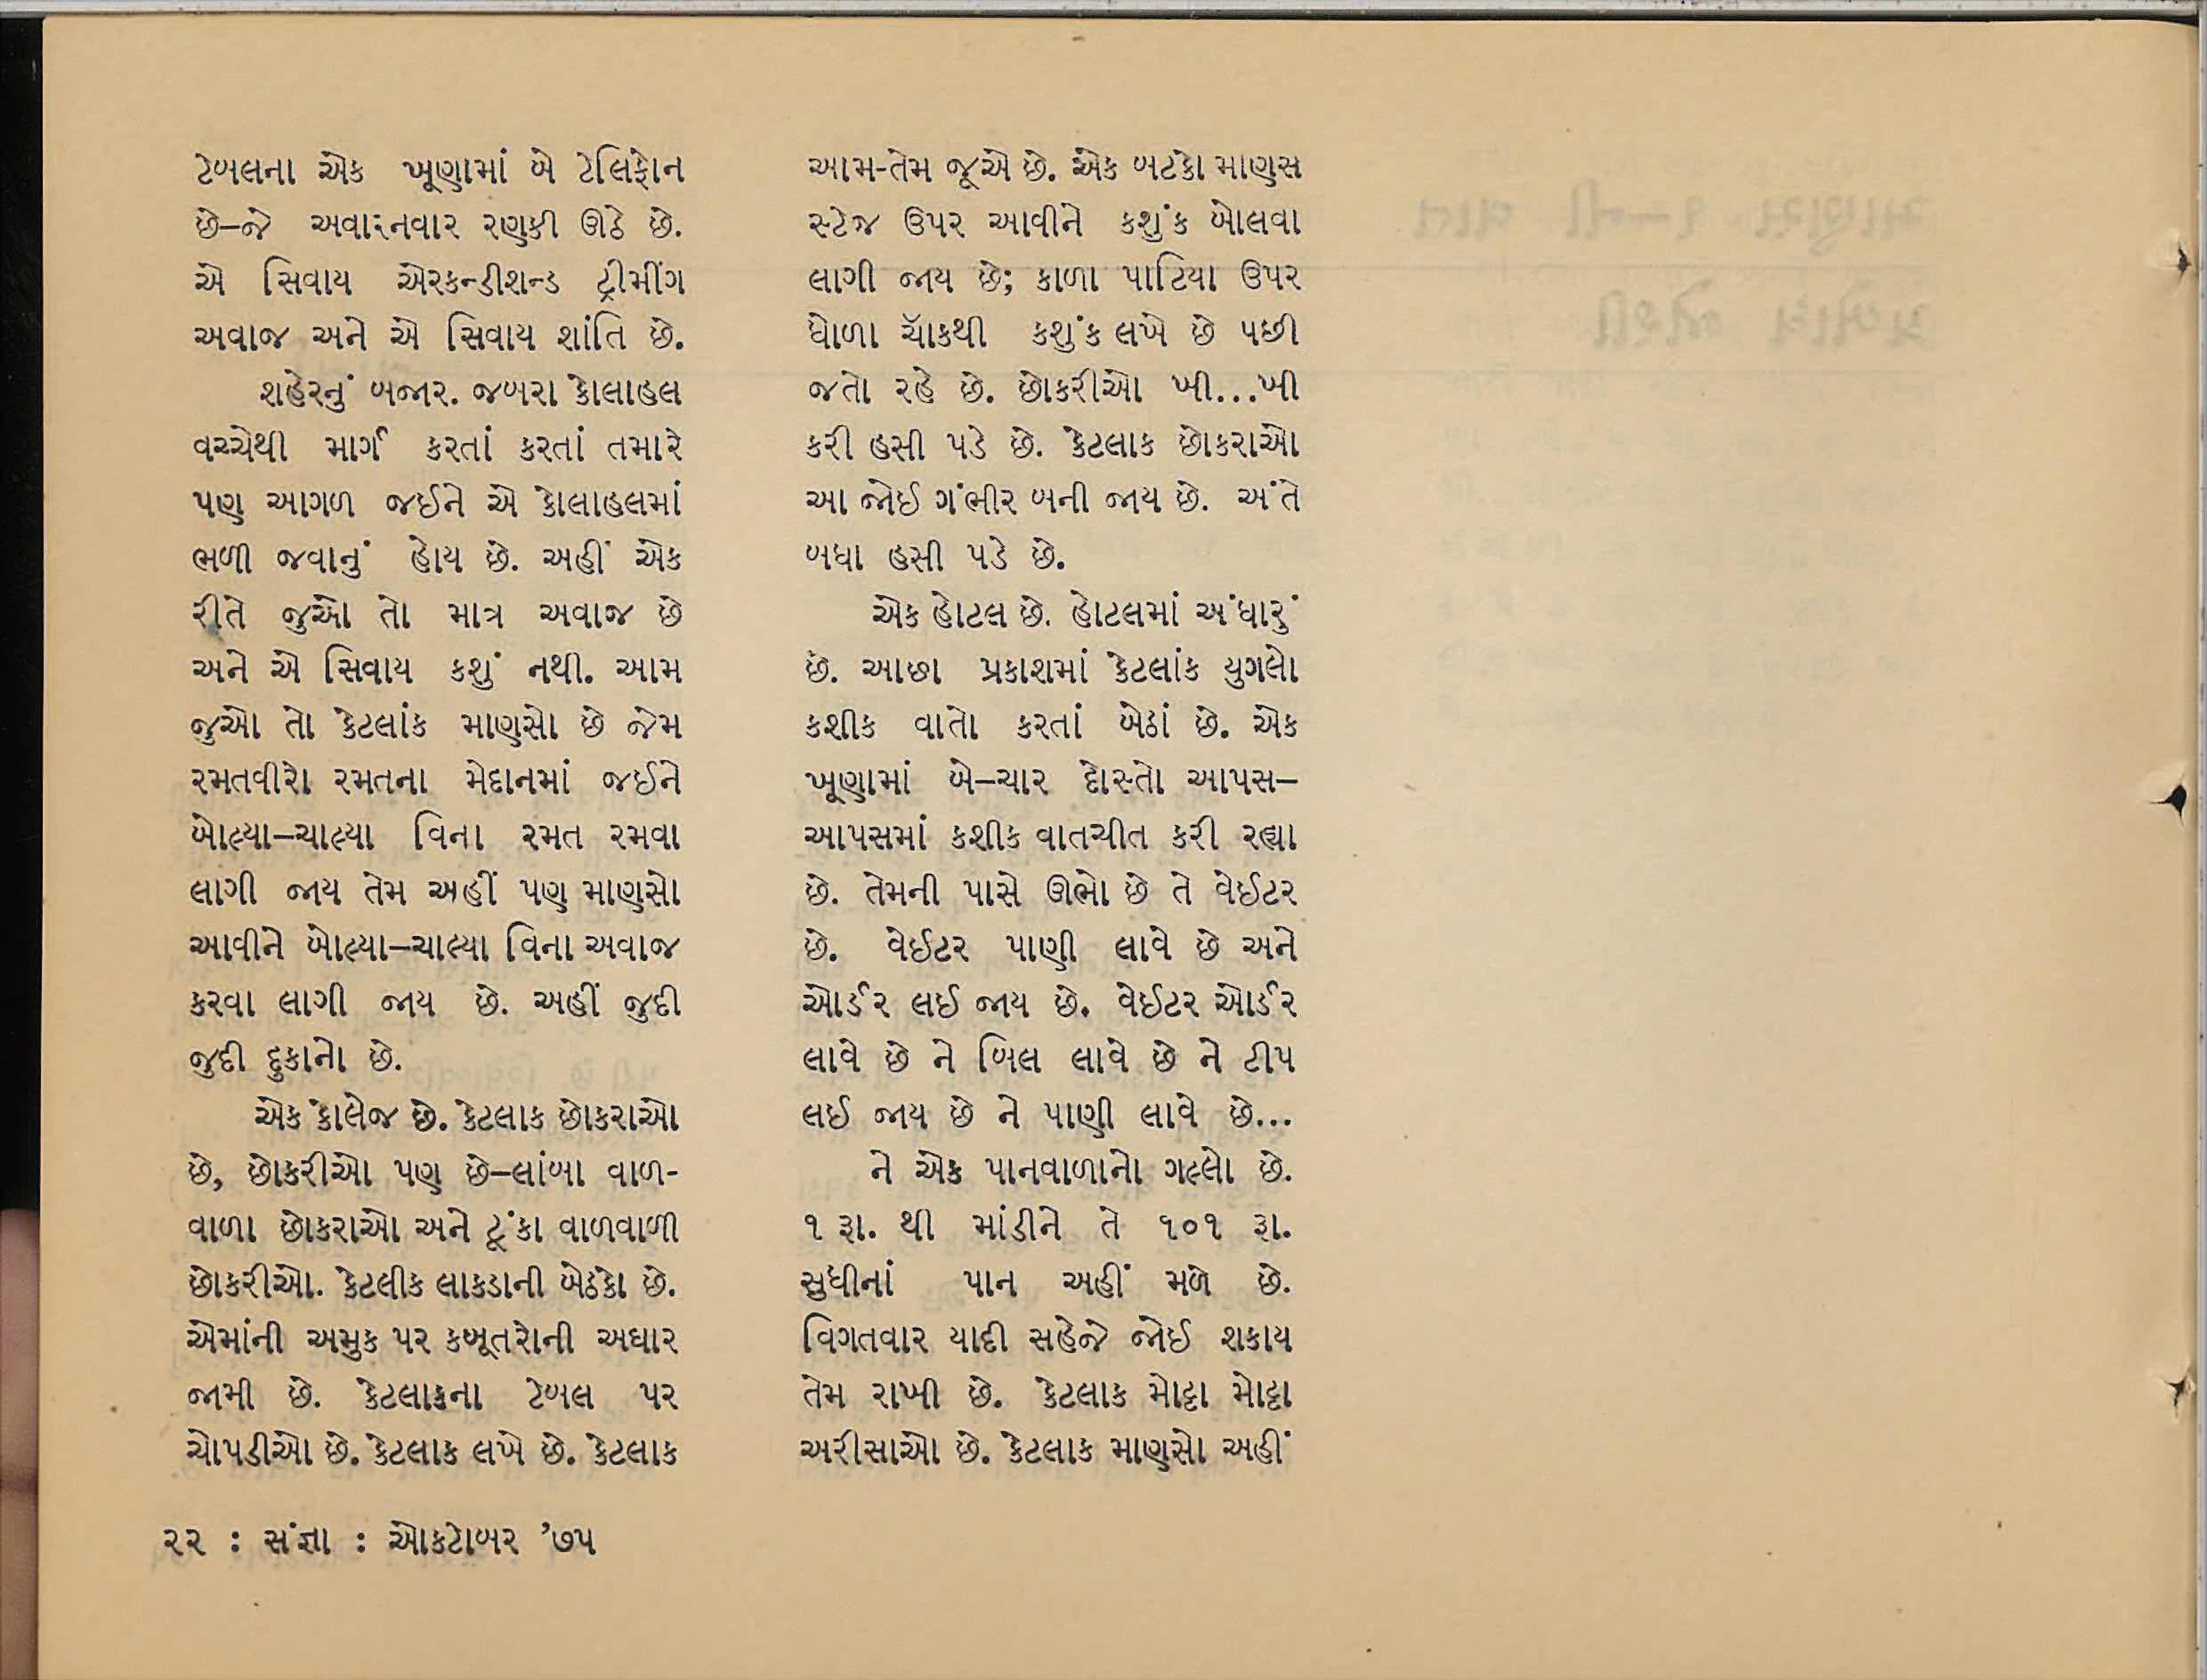 ટેબલના એક ખૂણામાં બે ટેલિફોન
છે–જે અવારનવાર રણકી ઊઠે છે.
એ સિવાય એરકન્ડીશન્ડ ટ્રીમીંગ
અવાજ અને એ સિવાય શાંતિ છે.
શહેરનું બજાર. જબરા કોલાહલ
વચ્ચેથી માર્ગ કરતાં કરતાં તમારે
પણ આગળ જઈને એ કોલાહલમાં
ભળી જવાનું હોય છે. અહીં એક
રીતે જુઓ તો માત્ર અવાજ છે
અને એ સિવાય કશું નથી. આમ
જુઓ તો કેટલાંક માણસો છે જેમ
રમતવીરો રમતના મેદાનમાં જઈને
બોલ્યા–ચાલ્યા વિના રમત રમવા
લાગી જાય તેમ અહીં પણ માણસો
આવીને બોલ્યા–ચાલ્યા વિના અવાજ
કરવા લાગી જાય છે. અહીં જુદી
જુદી દુકાનો છે.
એક કોલેજ છે. કેટલાક છોકરાઓ
છે, છોકરીઓ પણ છે–લાંબા વાળ-
વાળા છોકરાઓ અને ટૂંકા વાળવાળી
છોકરીઓ. કેટલીક લાકડાની બેઠકો છે.
એમાંની અમુક પર કબૂતરોની અઘાર
જામી છે. કેટલાકના ટેબલ પર
ચોપડીઓ છે. કેટલાક લખે છે. કેટલાક
આમ-તેમ જૂએ છે. એક બટકો માણસ
સ્ટેજ ઉપર આવીને કશુંક બોલવા
લાગી જાય છે; કાળા પાટિયા ઉપર
ધોળા ચૉકથી કશુંક લખે છે પછી
જતો રહે છે. છોકરીઓ ખી...ખી
કરી હસી પડે છે. કેટલાક છોકરાઓ
આ જોઈ ગંભીર બની જાય છે. અંતે
બધા હસી પડે છે.
એક હોટલ છે. હોટલમાં અંધારું
છે. આછા પ્રકાશમાં કેટલાંક યુગલો
કશીક વાતો કરતાં બેઠાં છે. એક
ખૂણામાં બે–ચાર દોસ્તો આપસ–
આપસમાં કશીક વાતચીત કરી રહ્યા
છે. તેમની પાસે ઊભો છે તે વેઈટર
છે. વેઈટર પાણી લાવે છે અને
ઓર્ડર લઈ જાય છે. વેઈટર ઓર્ડર
લાવે છે ને બિલ લાવે છે ને ટીપ
લઈ જાય છે ને પાણી લાવે છે...
ને એક પાનવાળાનો ગલ્લો છે.
૧ રૂા. થી માંડીને તે ૧૦૧ રૂા.
સુધીનાં પાન અહીં મળે છે.
વિગતવાર યાદી સહેજે જોઈ શકાય
તેમ રાખી છે. કેટલાક મોટ્ટા મોટ્ટા
અરીસાઓ છે. કેટલાક માણસો અહીં
૨૨ : સંજ્ઞા : ઓક્ટોબર '૭૫